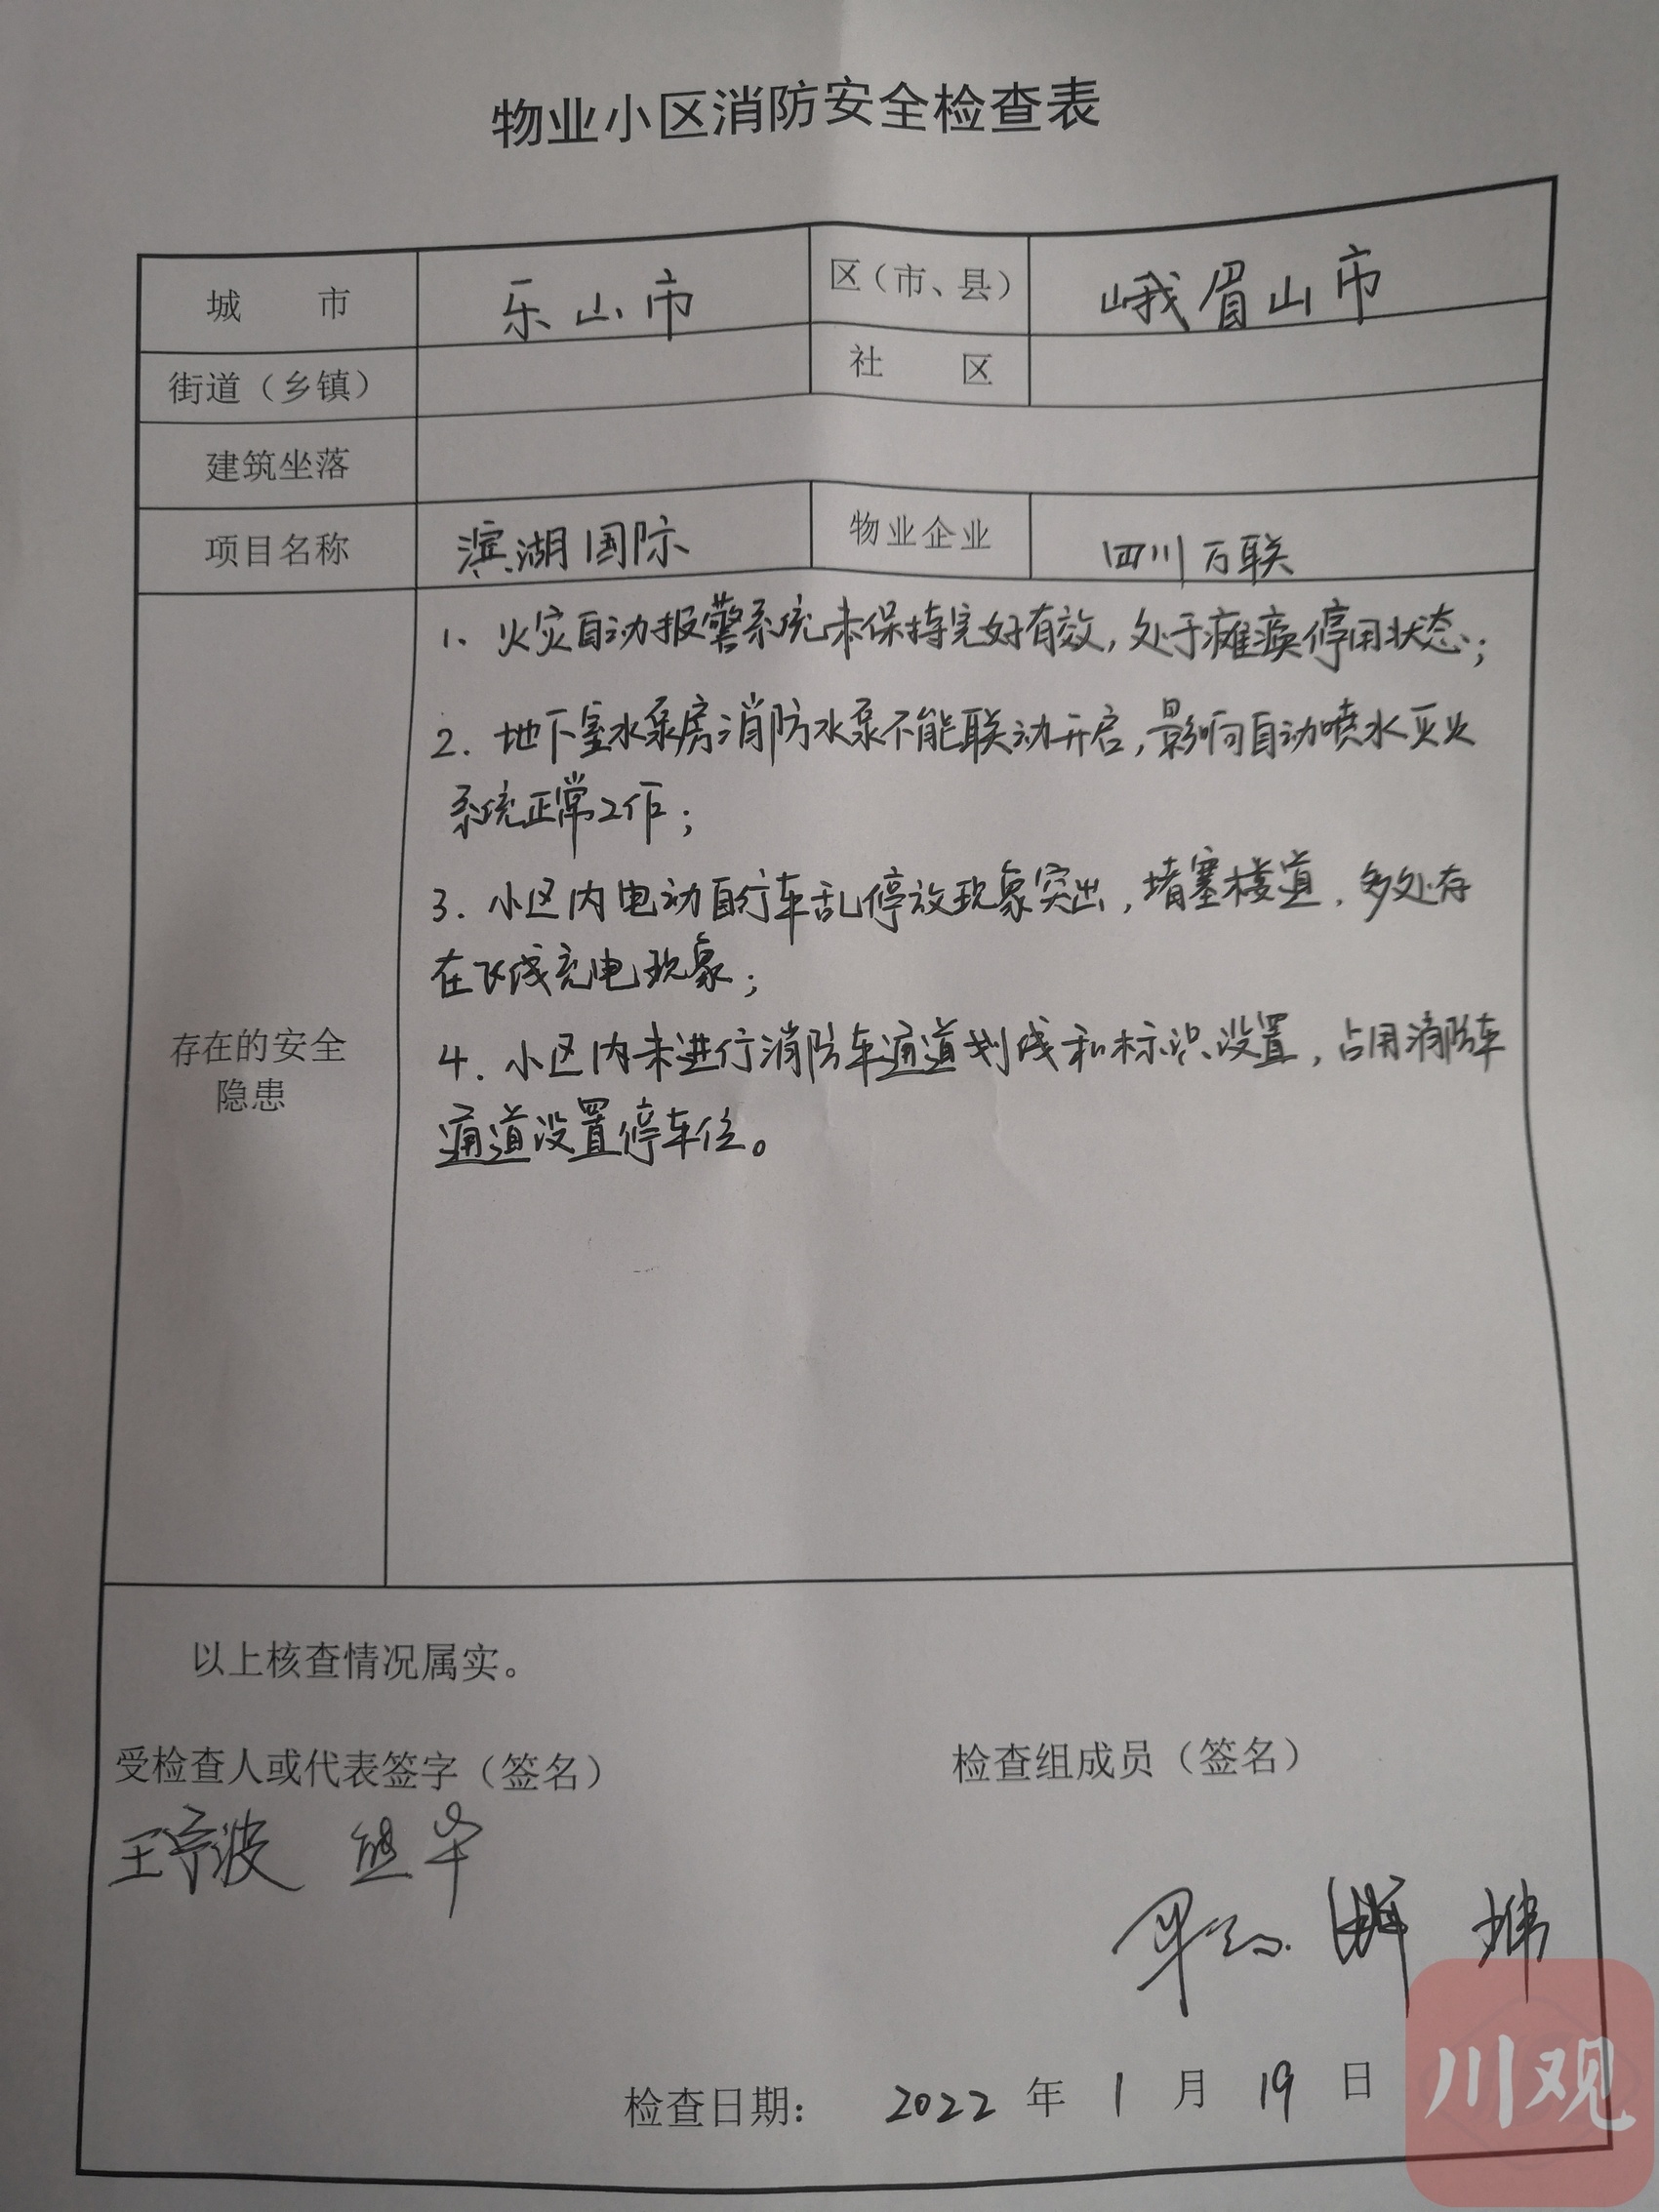 物业小区消防安全检查表
城 市 乐山市 区（市、县） 峨眉山市
街道（乡镇） 社 区
建筑坐落
项目名称 滨湖国际 物业企业 四川万联
1、火灾自动报警系统未保持完好有效，处于瘫痪停用状态；
2. 地下室水泵房消防水泵不能联动开启，影响自动喷水灭火
系统正常工作；
3. 小区内电动自行车乱停放现象突出，堵塞楼道，多处存
在飞线充电现象；
存在的安全
隐患
4. 小区内未进行消防车通道划线和标识设置，占用消防车
通道设置停车位。
以上核查情况属实。
受检查人或代表签字（签名） 检查组成员（签名）
王宁波 熊华
检查日期： 2022 年 1 月 19 日
川观